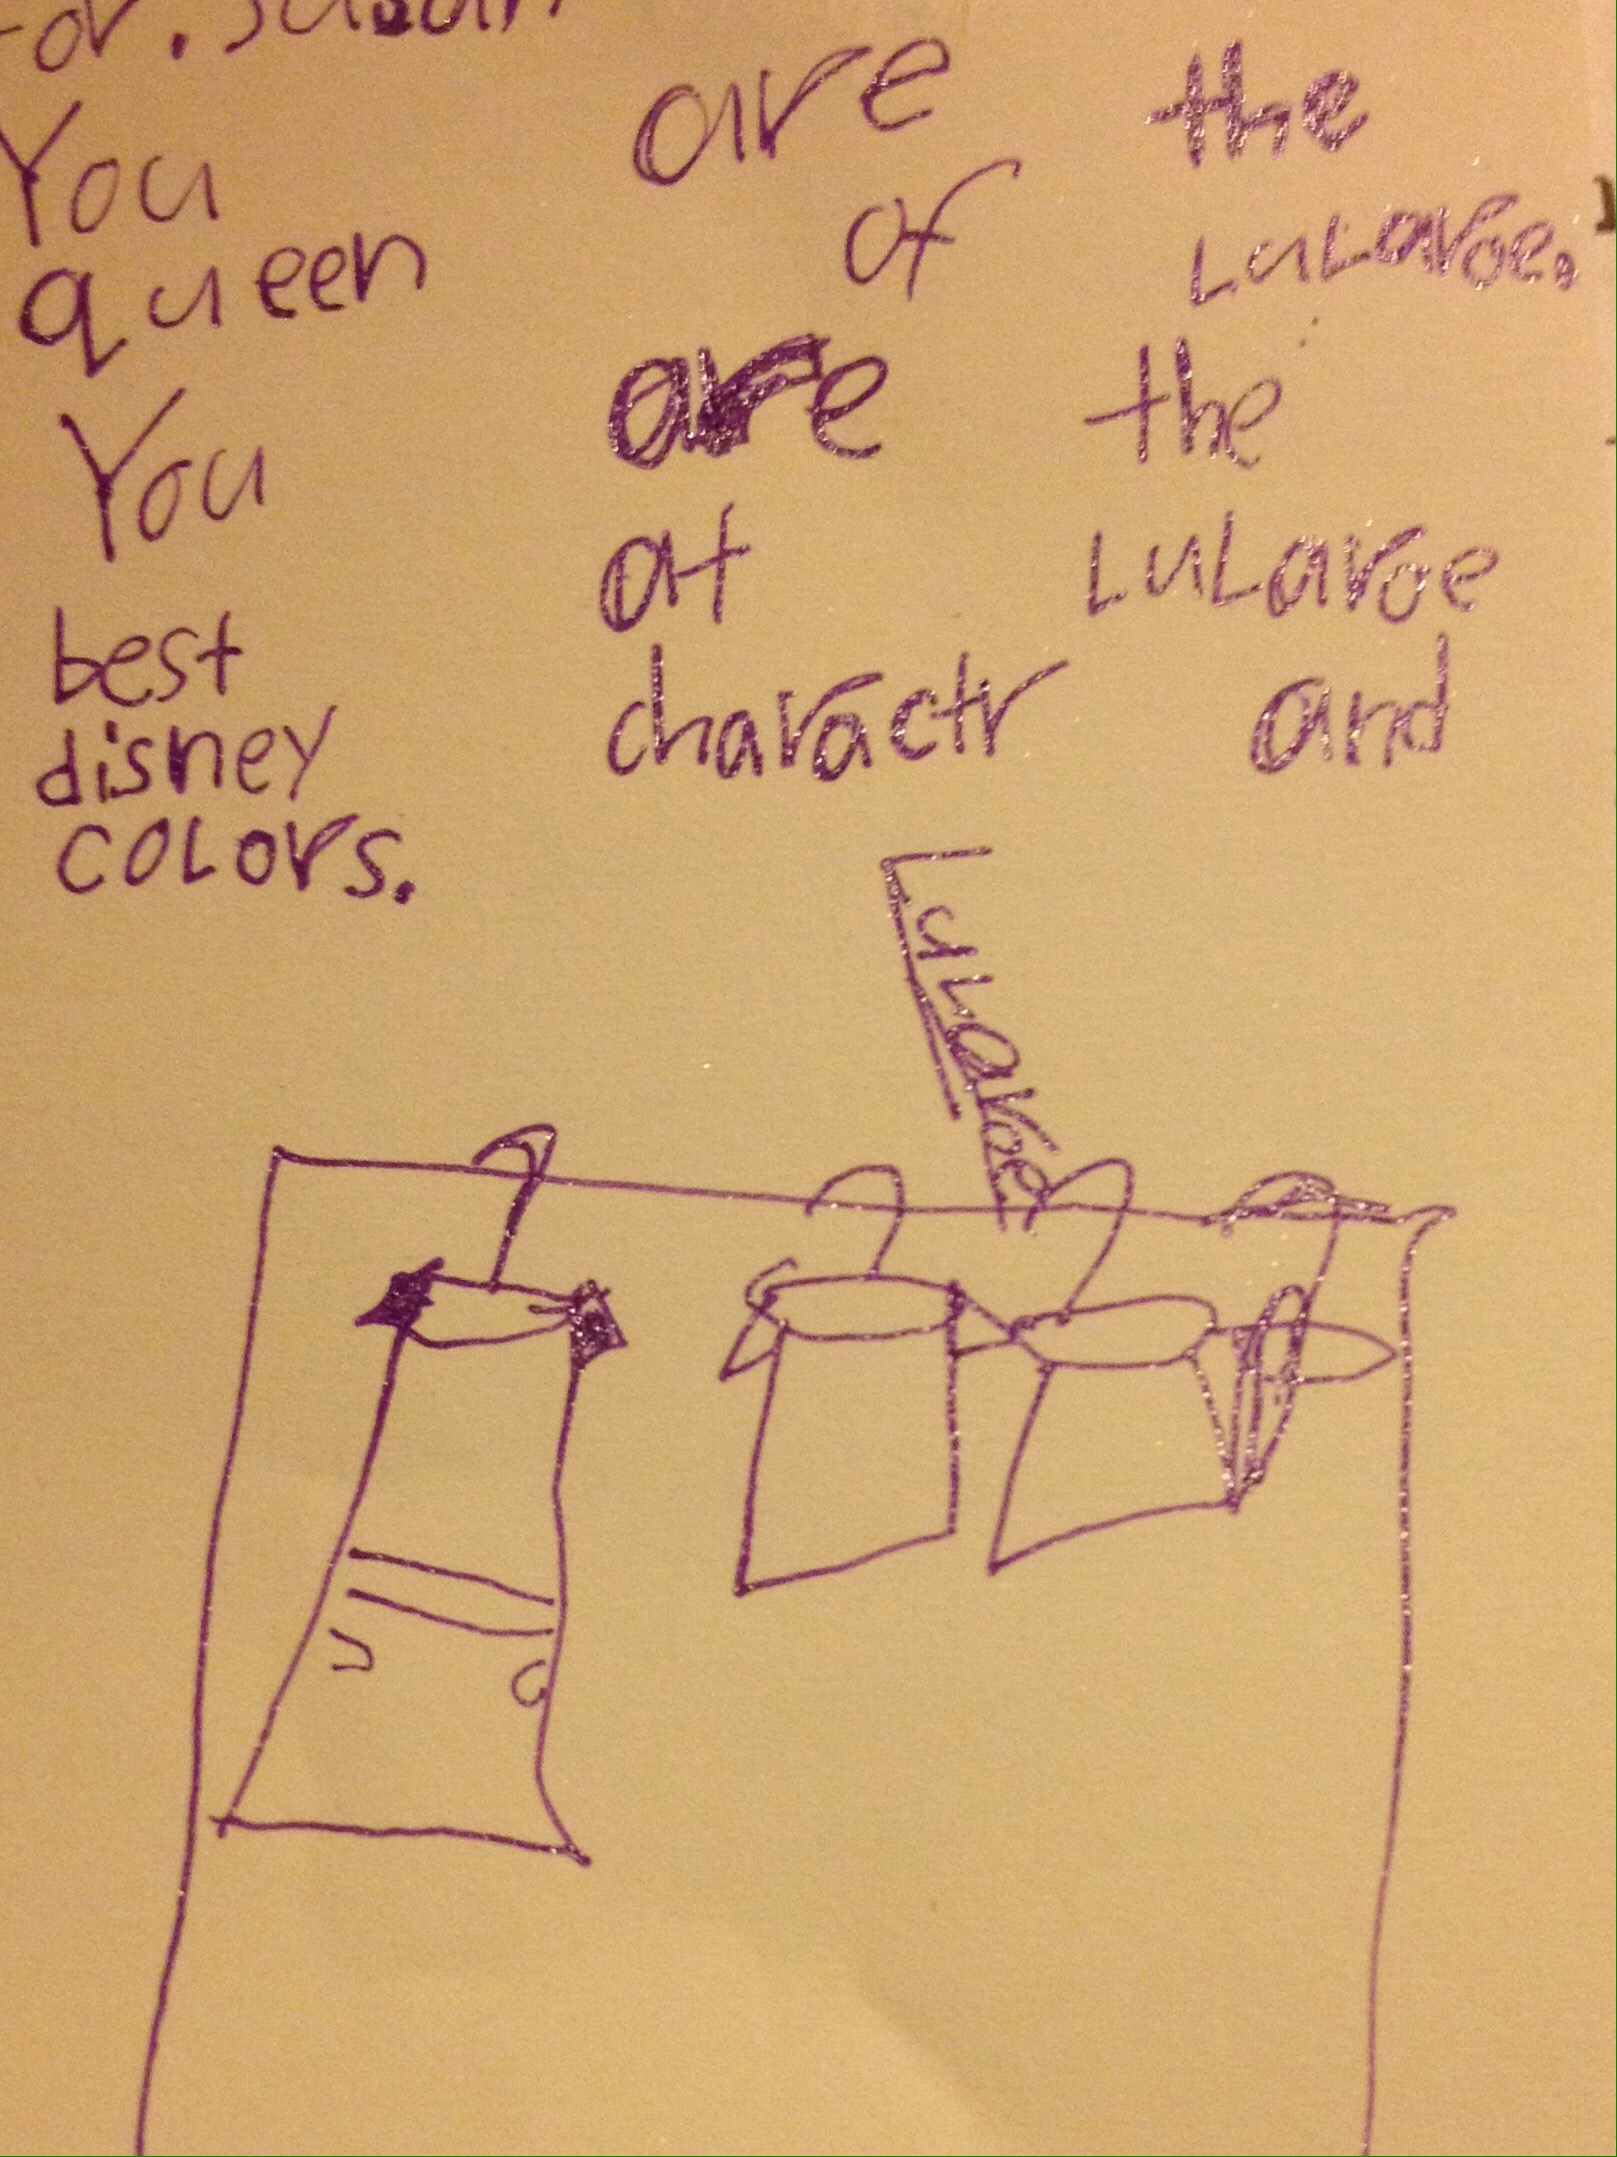 For. Susan
You are the
queen of LuLaroe.
You are the
best at LuLaroe
disney charactr and
coLors.
LuLaroe